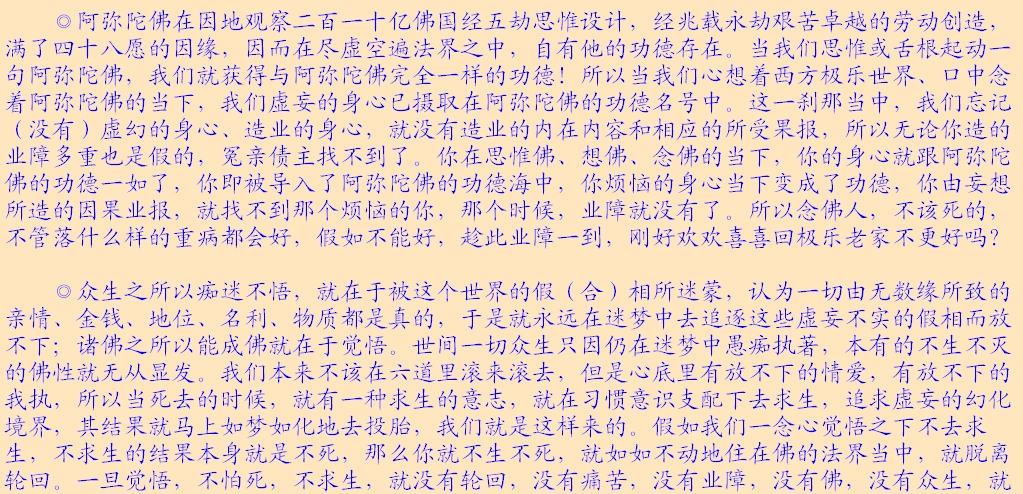 ◎阿弥陀佛在因地观察二百一十亿佛国经五劫思惟设计，经兆载永劫艰苦卓越的劳动创造，
满了四十八愿的因缘，因而在尽虚空遍法界之中，自有他的功德存在。当我们思惟或舌根起动一
句阿弥陀佛，我们就获得与阿弥陀佛完全一样的功德！所以当我们心想着西方极乐世界、口中念
着阿弥陀佛的当下，我们虚妄的身心已摄取在阿弥陀佛的功德名号中。这一刹那当中，我们忘记
（没有）虚幻的身心、造业的身心，就没有造业的内在内容和相应的所受果报，所以无论你造的
业障多重也是假的，冤亲债主找不到了。你在思惟佛、想佛、念佛的当下，你的身心就跟阿弥陀
佛的功德一如了，你即被导入了阿弥陀佛的功德海中，你烦恼的身心当下变成了功德，你由妄想
所造的因果业报，就找不到那个烦恼的你，那个时候，业障就没有了。所以念佛人，不该死的，
不管落什么样的重病都会好，假如不能好，趁此业障一到，刚好欢欢喜喜回极乐老家不更好吗？
◎众生之所以痴迷不悟，就在于被这个世界的假（合）相所迷蒙，认为一切由无数缘所致的
亲情、金钱、地位、名利、物质都是真的，于是就永远在迷梦中去追逐这些虚妄不实的假相而放
不下；诸佛之所以能成佛就在于觉悟。世间一切众生只因仍在迷梦中愚痴执著，本有的不生不灭
的佛性就无从显发。我们本来不该在六道里滚来滚去，但是心底里有放不下的情爱，有放不下的
我执，所以当死去的时候，就有一种求生的意志，就在习惯意识支配下去求生，追求虚妄的幻化
境界，其结果就马上如梦如化地去投胎，我们就是这样来的。假如我们一念心觉悟之下不去求
生，不求生的结果本身就是不死，那么你就不生不死，就如如不动地住在佛的法界当中，就脱离
轮回。一旦觉悟，不怕死，不求生，就没有轮回，没有痛苦，没有业障，没有佛，没有众生，就